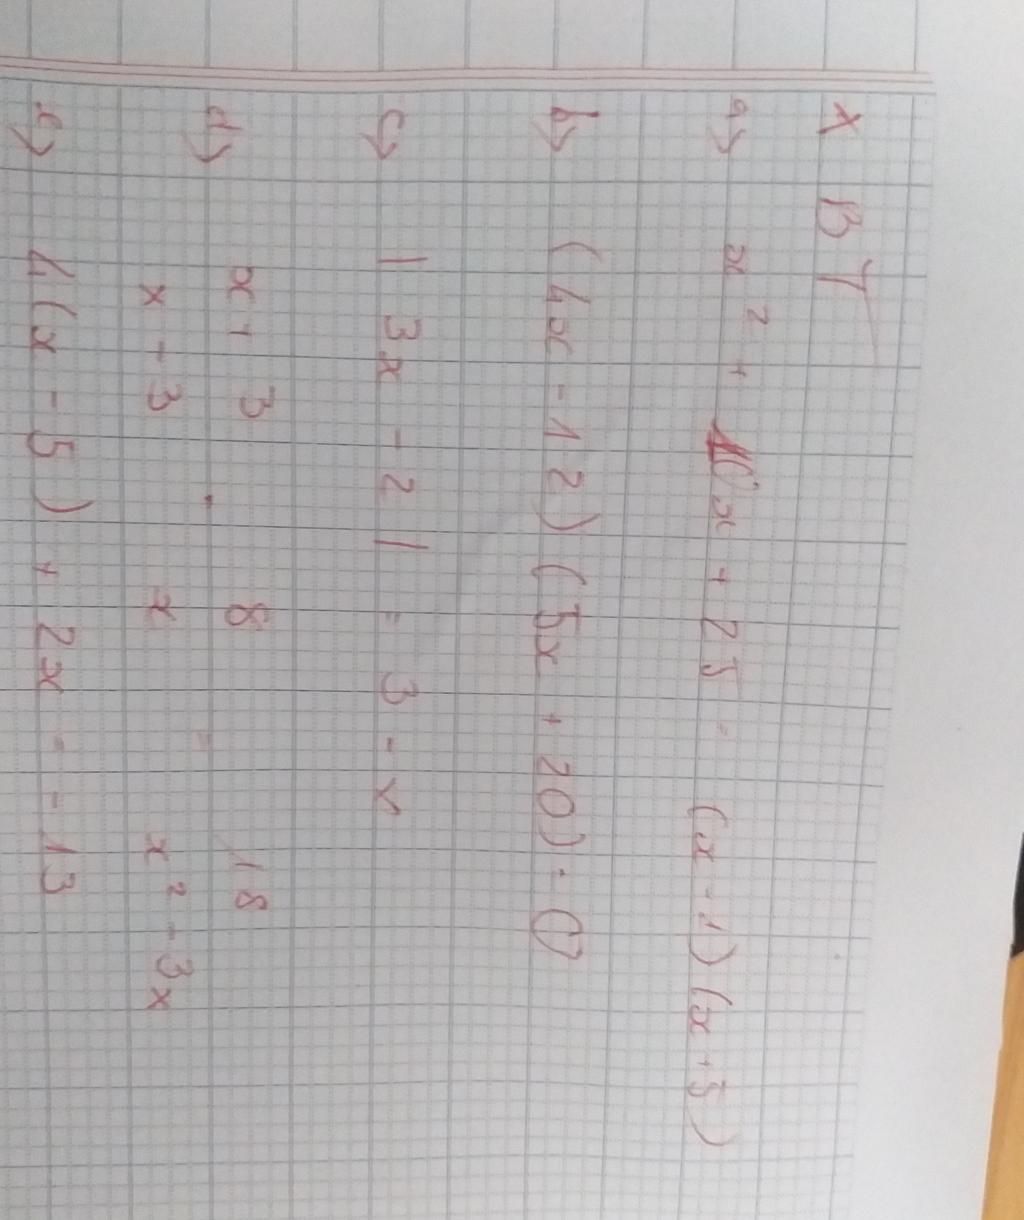 X BT
a) x² + 10x + 25 = (x - 1)(x + 5)
b) (4x - 12)(5x + 20) = 0
c) | 3x - 2 | = 3 - x
d) x + 3 8 18
- =
x + 3 x x² - 3x
e) 4(x - 5) + 2x = - 13